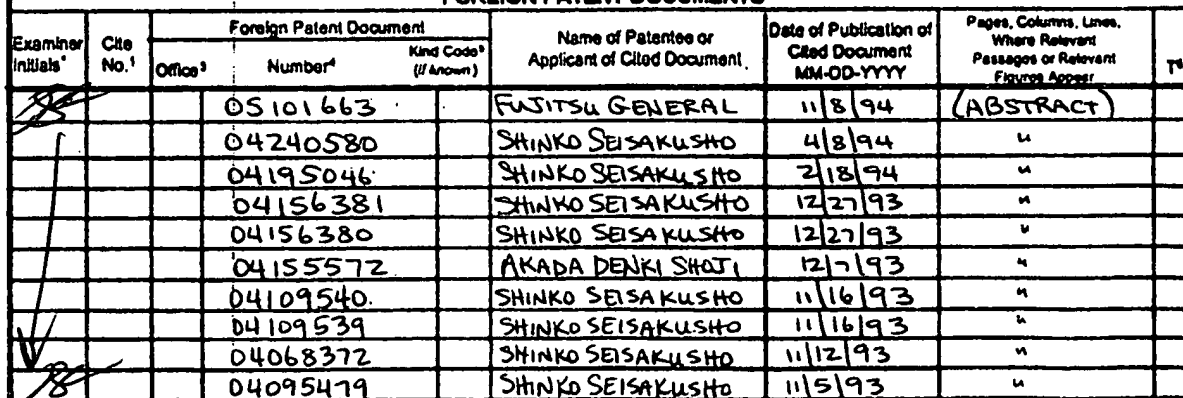 FOREIGN PATENT DOCUMENTS
Examiner Initials* Cite No.¹ Foreign Patent Document Office³ Number⁴ Kind Code⁵ (if known) Name of Patentee or Applicant of Cited Document Date of Publication of Cited Document MM-DD-YYYY Pages, Columns, Lines, Where Relevant Passages or Relevant Figures Appear T⁶
05101663 FUJITSU GENERAL 11/8/94 (ABSTRACT)
04240580 SHINKO SEISAKUSHO 4/8/94 "
04195046 SHINKO SEISAKUSHO 2/18/94 "
04156381 SHINKO SEISAKUSHO 12/27/93 "
04156380 SHINKO SEISAKUSHO 12/27/93 "
04155572 AKADA DENKI SHOJI 12/7/93 "
04109540 SHINKO SEISAKUSHO 11/16/93 "
04109539 SHINKO SEISAKUSHO 11/16/93 "
04068372 SHINKO SEISAKUSHO 11/12/93 "
04095479 SHINKO SEISAKUSHO 11/5/93 "